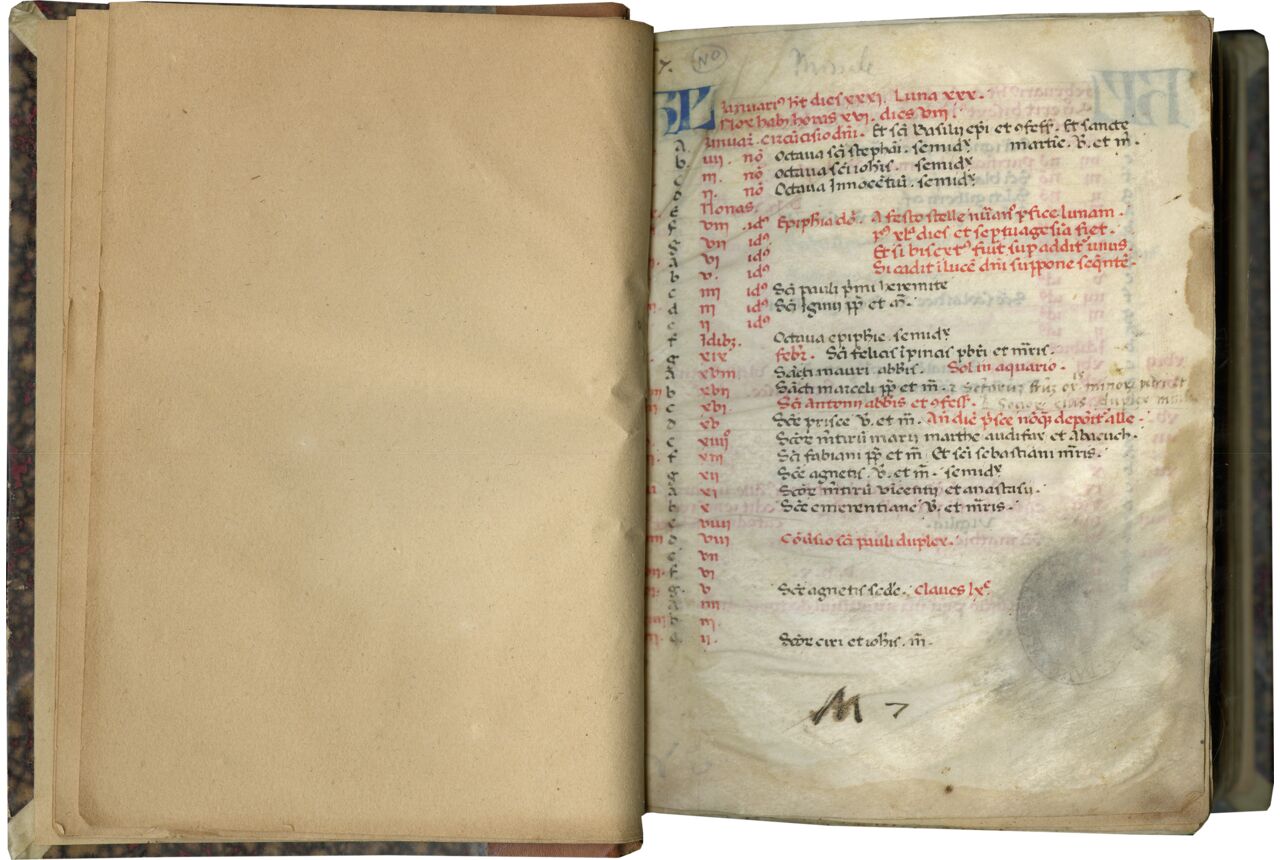 7. NO Missale
KL Ianuariꝰ ht dies xxxi. Luna xxx.
Nox habꝫ horas xvi. dies viii.
a Ianuar. circūcisio dnī. Et sci Basilii epi et ꝯfess. Et sancte
b iiii. nō Octaua sci stephāi. semidꝫ martīe. v̄. et m̄.
c iii. nō octaua sci iohis. semidꝫ
d ii. nō Octaua Innocētiū. semidꝫ
e Nonas.
f viii .idꝰ Epiphīa dn̄i. A festo stelle nūans ꝑfice lunam.
g vii idꝰ pꝰ xlᵃ dies et septuagesia fiet.
a vi idꝰ Et si bisextꝰ fuīt suꝑ addit unus.
b v. idꝰ Si cadit ī lucē dn̄i suppone seqn̄tē.
c iiii idꝰ Sci pauli pīmi heremite
d iii idꝰ Sci Igini pp̄ et m̄.
e ii idꝰ
f Idibꝫ. Octaua epiphīe. semidꝫ
g xix febr̄. Sci felicis ī pincis pbri et mr̄is.
a xviii Sācti mauri abbis. Sol in aquario.
b xvii Sācti marceli pp̄ et m̄.
c xvi. Sci Antonii abbis et ꝯfess.
d xv Scē prisce v̄. et m̄. An̄ diē pīsce
e xiiii Scōꝝ mr̄tirū marii marthe audifax et Abacuch.
f xiii Sci fabiani pp̄ et m̄ Et sci sebastiani mr̄is.
g xii Scē agnetis. v̄. et m̄. semidꝫ
a xi Scōꝝ mr̄tirū vincentii et anastasii.
b x Scē emerentiane v̄. et mr̄is.
c viiii
d viii Cōūsio sci pauli duplex.
e vii
f vi
g v Scē agnetis sedē. claues lxᶜ.
a iiii
b iii.
c ii. Scōꝝ ciri et iohis. m̄.
M 7